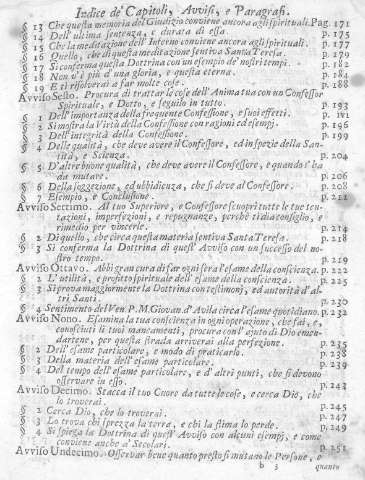 Indice de' Capitoli, Avvisi, e Paragrafi.
§ 13 Che questa memoria del Giudizio conviene ancora agli spirituali. Pag. 171
§ 14 Dell' ultima sentenza, e durata di essa. p. 175
§ 15 Che la meditazione dell' Inferno conviene ancora agli spirituali. p. 177
§ 16 Quello, che di questa meditazione sentiva Santa Teresa. p. 179
§ 17 Si conferma questa Dottrina con un esempio de' nostri tempi. p. 182
§ 18 Non v' è più d' una gloria, e questa eterna. p. 184
§ 19 E ti risolverai a far molte cose. p. 188
Avviso Sesto. Procura di trattar le cose dell' Anima tua con un Confessor
Spirituale, e Dotto, e seguilo in tutto p. 193
§ 1 Dell' importanza della frequente Confessione, e suoi effetti. p. ivi
§ 2 Si mostra la Virtù della Confessione con ragioni ed esempj. p. 196
§ 3 Dell' integrità della Confessione. p. 199
§ 4 Delle qualità, che deve avere il Confessore, ed in spezie della San-
tità, e Scienza. p. 204
§ 5 D' altre buone qualità, che deve avere il Confessore, e quando s' ha
da mutare. p. 206
§ 6 Della soggezione, ed ubbidienza, che si deve al Confessore. p. 208
§ 7 Esempio, e Conclusione. p. 211
Avviso Settimo. Al tuo Superiore, e Confessore scuopri tutte le tue ten-
tazioni, imperfezioni, e repugnanze, perchè ti dia consiglio, e
rimedio per vincerle. p. 214
§ 2 Di quello, che circa questa materia sentiva Santa Teresa. p. 218
§ 3 Si conferma la Dottrina di quest' Avviso con un successo del no-
stro tempo. p. 219
Avviso Ottavo. Abbi gran cura di far ogni sera l'esame della coscienza. p. 222
§ 2 L' utilità, e profitto spirituale dell' esame della coscienza. p. 225
§ 3 Si prova maggiormente la Dottrina con testimonj, ed autorità d' al-
tri Santi. p. 230
§ 4 Sentimento del Ven. P. M. Giovan. d' Avila circa l'esame quotidiano. p. 232
Avviso Nono. Esamina la tua coscienza in ogni operazione, che fai, e,
conosciuti li tuoi mancamenti, procura con l' ajuto di Dio emen-
dartene, per questa strada arriverai alla perfezione. p. 235
§ 2 Dell' esame particolare, e modo di praticarlo. p. 238
§ 3 Della materia dell' esame particolare. p. 239
§ 4 Del tempo dell' esame particolare, e d' altri punti, che si devono
osservare in esso. p. 243
Avviso Decimo. Stacca il tuo Cuore da tutte le cose, e cerca Dio, che
lo troverai. p. 245
§ 2 Cerca Dio, che lo troverai. p. 247
§ 3 Lo trova chi sprezza la terra, e chi la stima lo perde. p. 249
§ 4 Si spiega la Dottrina di quest' Avviso con alcuni esempj, e come
conviene anche a' Secolari. p. 251
Avviso Undecimo. Osservar bene quanto presto si mutano le Persone, e
b 3 quanto